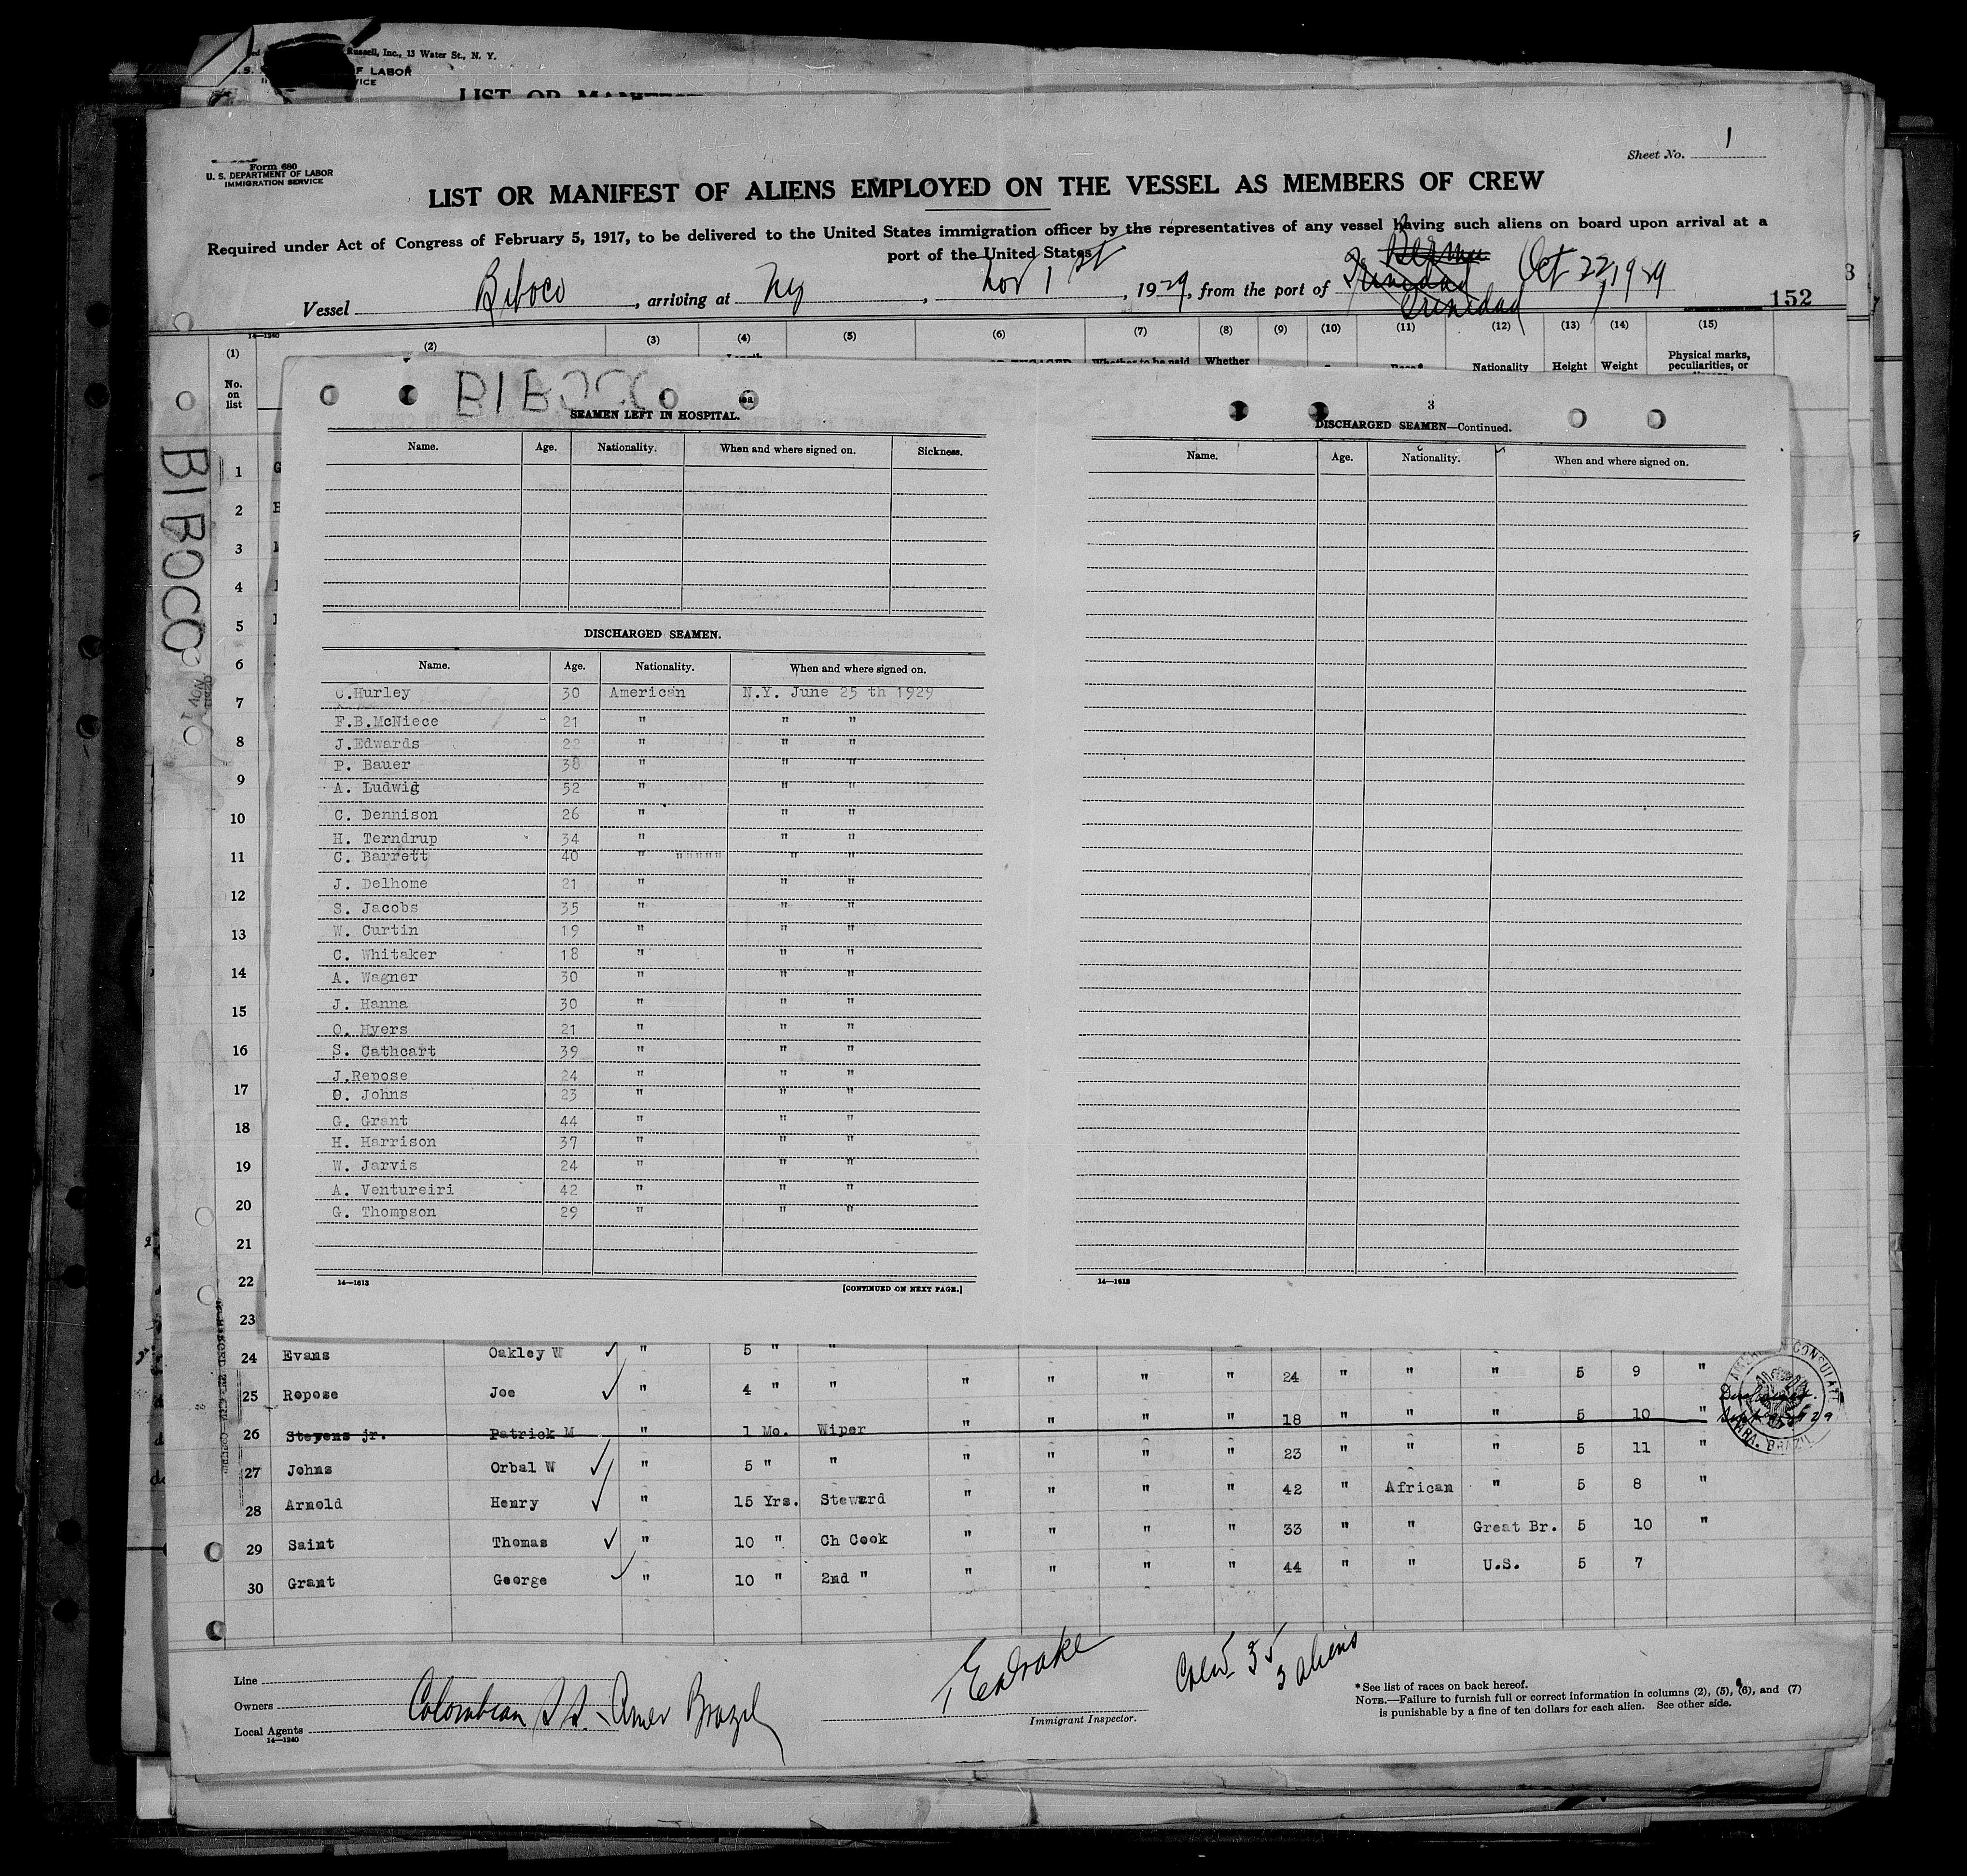 Russell, Inc., 13 Water St., N. Y.
OF LABOR
LIST OR MANIFEST
Sheet No. 1
Form 680
U. S. DEPARTMENT OF LABOR
IMMIGRATION SERVICE
LIST OR MANIFEST OF ALIENS EMPLOYED ON THE VESSEL AS MEMBERS OF CREW
Required under Act of Congress of February 5, 1917, to be delivered to the United States immigration officer by the representatives of any vessel having such aliens on board upon arrival at a
port of the United States
Vessel Biboco, arriving at Ny, Nov 1st, 1929, from the port of Trinidad Trinidad Oct 22, 1929
152
14-1240
(1) (2) (3) (4) (5) (6) (7) (8) (9) (10) (11) (12) (13) (14) (15)
No. on list Whether to be paid Whether Nationality Height Weight Physical marks, peculiarities, or
BIBOCO
BIBOCO
SEAMEN LEFT IN HOSPITAL.
Name. Age. Nationality. When and where signed on. Sickness.
DISCHARGED SEAMEN.
Name. Age. Nationality. When and where signed on.
C.Hurley 30 American N.Y. June 25 th 1929
F.B.McNiece 21 " " "
J.Edwards 22 " " "
P. Bauer 38 " " "
A. Ludwig 52 " " "
C. Dennison 26 " " "
H. Terndrup 34 " " "
C. Barrett 40 " """"" " "
J. Delhome 21 " " "
S. Jacobs 35 " " "
W. Curtin 19 " " "
C. Whitaker 18 " " "
A. Wagner 30 " " "
J. Hanna 30 " " "
O. Hyers 21 " " "
S. Cathcart 39 " " "
J.Repose 24 " " "
O. Johns 23 " " "
G. Grant 44 " " "
H. Harrison 37 " " "
W. Jarvis 24 " " "
A. Ventureiri 42 " " "
G. Thompson 29 " " "
14—1613 [CONTINUED ON NEXT PAGE.]
3
DISCHARGED SEAMEN—Continued.
Name. Age. Nationality. When and where signed on.
14—1613
1
2
3
4
5
6
7
8
9
10
11
12
13
14
15
16
17
18
19
20
21
22
23
24 Evans Oakley W ✓ " 5 " " " " " " 24 " " " 5 9 "
25 Repose Joe ✓ " 4 " " " " " " 18 " " " 5 10 "
26 Stevens jr. Patrick M " 1 Mo. Wiper " " " " 23 " " " 5 11 "
27 Johns Orbal W ✓ " 5 " " " " " " 42 " African " 5 8 "
28 Arnold Henry ✓ " 15 Yrs. Steward " " " " 33 " " Great Br. 5 10 "
29 Saint Thomas ✓ " 10 " Ch Cook " " " " 44 " " U.S. 5 7
30 Grant George ✓ " 10 " 2nd "
AMERICAN CONSULATE
BRAZIL
Line
Owners Colombian S S. - Amer Brazil
Local Agents
14—1240
Immigrant Inspector.
Crew 35
3 aliens
* See list of races on back hereof.
NOTE.—Failure to furnish full or correct information in columns (2), (5), (6), and (7)
is punishable by a fine of ten dollars for each alien. See other side.